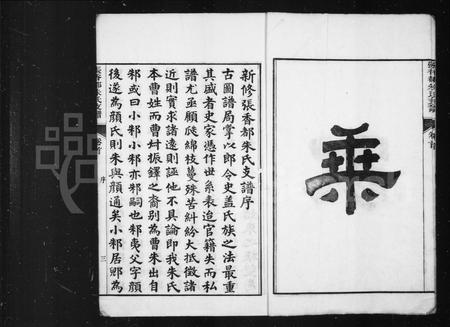 乘
新修張香都朱氏支譜序
古圖譜局掌以郎令史蓋氏族之法最重
其盛者史家憑作世系表迨官籍失而私
譜尤亟顧瓞綿枝蔓殊苦糾紛大抵徵諸
近則實求諸遠則誣他不具論即我朱氏
本曹姓而曹叔振鐸之裔别為曹朱出自
邾或曰小邾小邾亦邾嗣也邾夷父字顏
後遂為顏氏則朱與顏通矣小邾居郳為
卷首
序
三